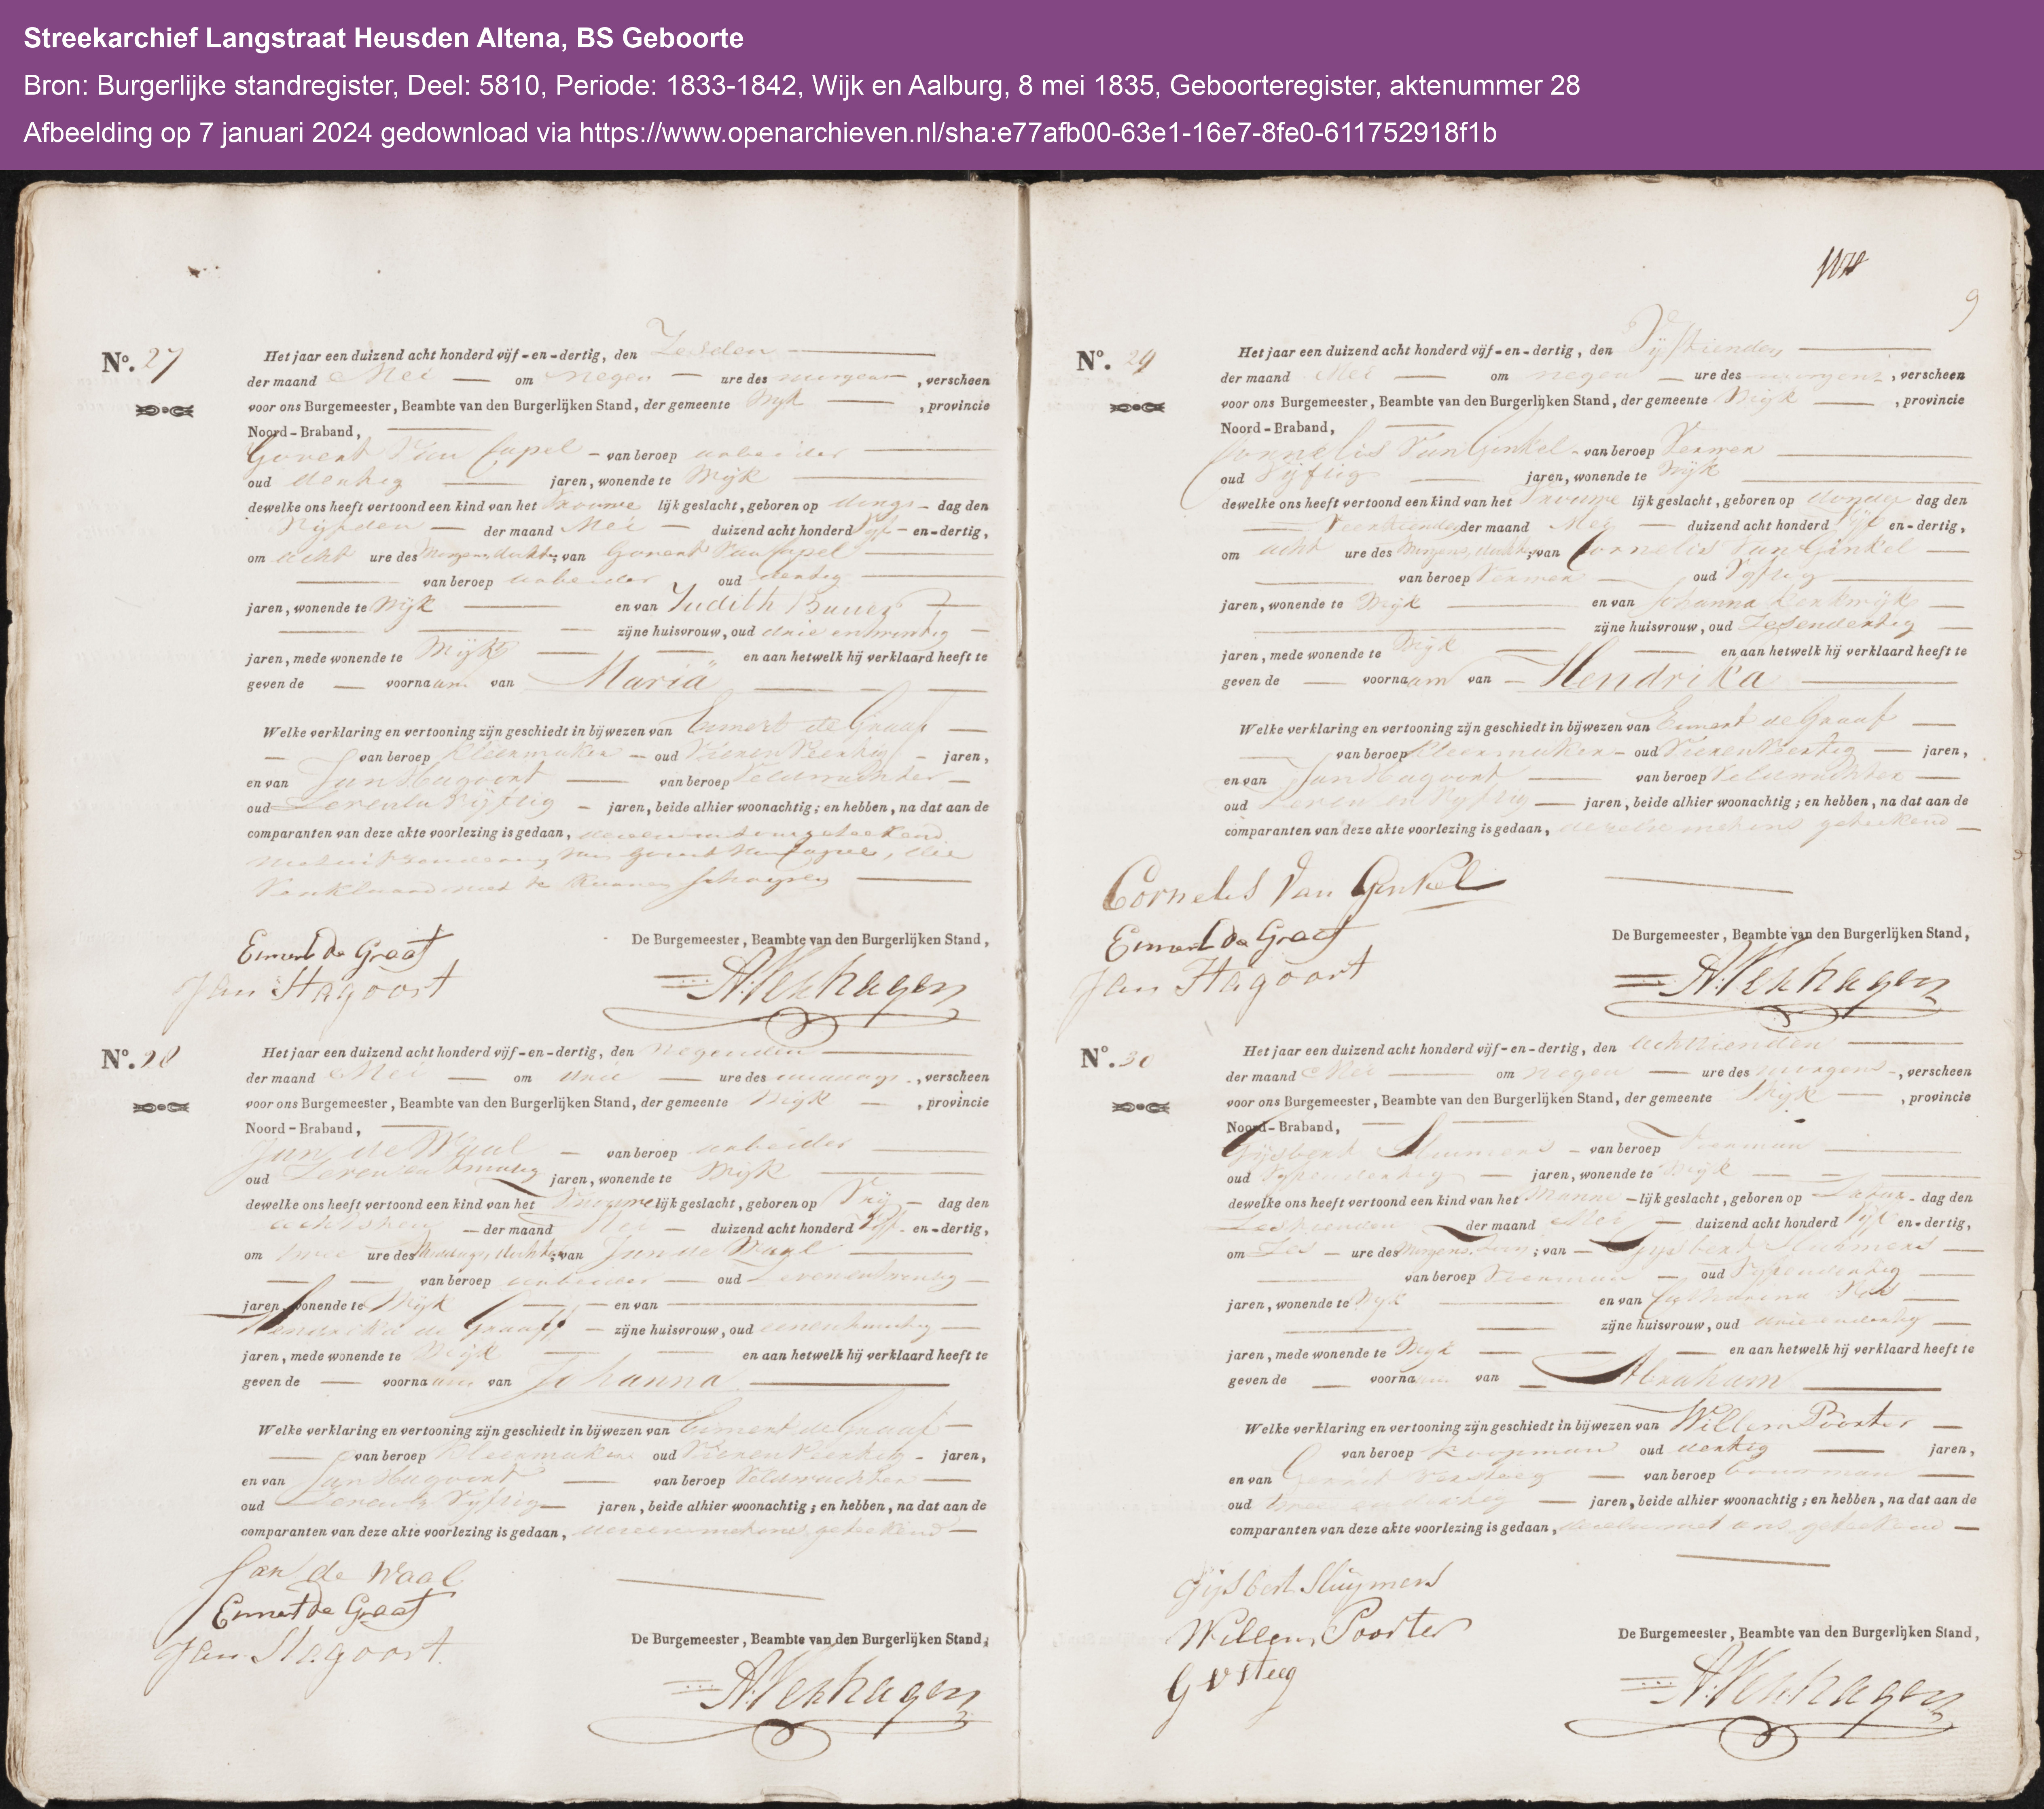 Streekarchief Langstraat Heusden Altena, BS Geboorte
Bron: Burgerlijke standregister, Deel: 5810, Periode: 1833-1842, Wijk en Aalburg, 8 mei 1835, Geboorteregister, aktenummer 28
Afbeelding op 7 januari 2024 gedownload via https://www.openarchieven.nl/sha:e77afb00-63e1-16e7-8fe0-611752918f1b
No. 27 Het jaar een duizend acht honderd vijf-en-dertig, den Zesden
der maand Mei om negen ure des morgens, verscheen
voor ons Burgemeester, Beambte van den Burgerlijken Stand, der gemeente Wijk, provincie
Noord-Braband,
Govert Van Capel van beroep arbeider
oud dertig jaren, wonende te Wijk
dewelke ons heeft vertoond een kind van het Vrouwe lijk geslacht, geboren op dings dag den
Vijfden der maand Mei duizend acht honderd Vijf en-dertig,
om acht ure des Morgens, dochter; van Govert Van Capel
van beroep arbeider oud dertig
jaren, wonende te Wijk en van Judith
zijne huisvrouw, oud drie en twintig
jaren, mede wonende te Wijk en aan hetwelk hij verklaard heeft te
geven de voornaam van Maria
Welke verklaring en vertooning zijn geschiedt in bijwezen van Eimert de Graaf
van beroep Kleermaker oud Vieren Veertig jaren,
en van Jan Hagoort van beroep Veldwachter
oud Zeven en Vijftig jaren, beide alhier woonachtig; en hebben, na dat aan de
comparanten van deze akte voorlezing is gedaan, dezen met ons geteekend
met uitzondering van Govert Van Capel, die
Verklaard niet te kunnen schrijven
Eimert de Graaf
Jan Hagoort
De Burgemeester, Beambte van den Burgerlijken Stand,
A. Verhagen
No. 28 Het jaar een duizend acht honderd vijf-en-dertig, den negenden
der maand Mei om drie ure des middags, verscheen
voor ons Burgemeester, Beambte van den Burgerlijken Stand, der gemeente Wijk, provincie
Noord-Braband,
Jan de Waal van beroep arbeider
oud Zeven en twintig jaren, wonende te Wijk
dewelke ons heeft vertoond een kind van het Vrouwe lijk geslacht, geboren op Vrij dag den
achtsten der maand Mei duizend acht honderd Vijf en-dertig,
om twee ure des Middags, dochter; van Jan de Waal
van beroep arbeider oud Zeven en twintig
jaren, wonende te Wijk en van
Hendrika de Graaff zijne huisvrouw, oud eenentwintig
jaren, mede wonende te Wijk en aan hetwelk hij verklaard heeft te
geven de voornaam van Johanna
Welke verklaring en vertooning zijn geschiedt in bijwezen van Eimert de Graaf
van beroep Kleermaker oud Vieren Veertig jaren,
en van Jan Hagoort van beroep Veldwachter
oud Zeven en Vijftig jaren, beide alhier woonachtig; en hebben, na dat aan de
comparanten van deze akte voorlezing is gedaan, dezen met ons geteekend
Jan de Waal
Eimert de Graaf
Jan Hagoort
De Burgemeester, Beambte van den Burgerlijken Stand,
A. Verhagen
9
No. 29 Het jaar een duizend acht honderd vijf-en-dertig, den Vijftienden
der maand Mei om negen ure des morgens, verscheen
voor ons Burgemeester, Beambte van den Burgerlijken Stand, der gemeente Wijk, provincie
Noord-Braband,
Cornelis Van Ginkel van beroep
oud Vijftig jaren, wonende te Wijk
dewelke ons heeft vertoond een kind van het Vrouwe lijk geslacht, geboren op donder dag den
Veertienden der maand Mey duizend acht honderd Vijf en-dertig,
om acht ure des Morgens, dochter; van Cornelis Van Ginkel
van beroep oud Vijftig
jaren, wonende te Wijk en van Johanna Kerkwijk
zijne huisvrouw, oud Zesendertig
jaren, mede wonende te Wijk en aan hetwelk hij verklaard heeft te
geven de voornaam van Hendrika
Welke verklaring en vertooning zijn geschiedt in bijwezen van Eimert de Graaf
van beroep Kleermaker oud Vieren Veertig jaren,
en van Jan Hagoort van beroep Veldwachter
oud Zeven en Vijftig jaren, beide alhier woonachtig; en hebben, na dat aan de
comparanten van deze akte voorlezing is gedaan, dezelve met ons geteekend
Cornelis Van Ginkel
Eimert de Graaf
Jan Hagoort
De Burgemeester, Beambte van den Burgerlijken Stand,
A. Verhagen
No. 30 Het jaar een duizend acht honderd vijf-en-dertig, den achttienden
der maand Mei om negen ure des morgens, verscheen
voor ons Burgemeester, Beambte van den Burgerlijken Stand, der gemeente Wijk, provincie
Noord-Braband,
Gijsbert Sluimers van beroep
oud Vijfendertig jaren, wonende te Wijk
dewelke ons heeft vertoond een kind van het Manne lijk geslacht, geboren op Satur dag den
Zestienden der maand Mei duizend acht honderd Vijf en-dertig,
om Zes ure des Morgens, Zoon; van Gijsbert Sluimers
van beroep oud Vijfendertig
jaren, wonende te Wijk en van Catharina
zijne huisvrouw, oud drie en dertig
jaren, mede wonende te Wijk en aan hetwelk hij verklaard heeft te
geven de voornaam van Abraham
Welke verklaring en vertooning zijn geschiedt in bijwezen van Willem Poorter
van beroep Koopman oud dertig jaren,
en van Gerrit Versteeg van beroep Bouwman
oud twee en dertig jaren, beide alhier woonachtig; en hebben, na dat aan de
comparanten van deze akte voorlezing is gedaan, dezelve met ons geteekend
Gijsbert Sluijmers
Willem Poorter
G V Steeg
De Burgemeester, Beambte van den Burgerlijken Stand,
A. Verhagen